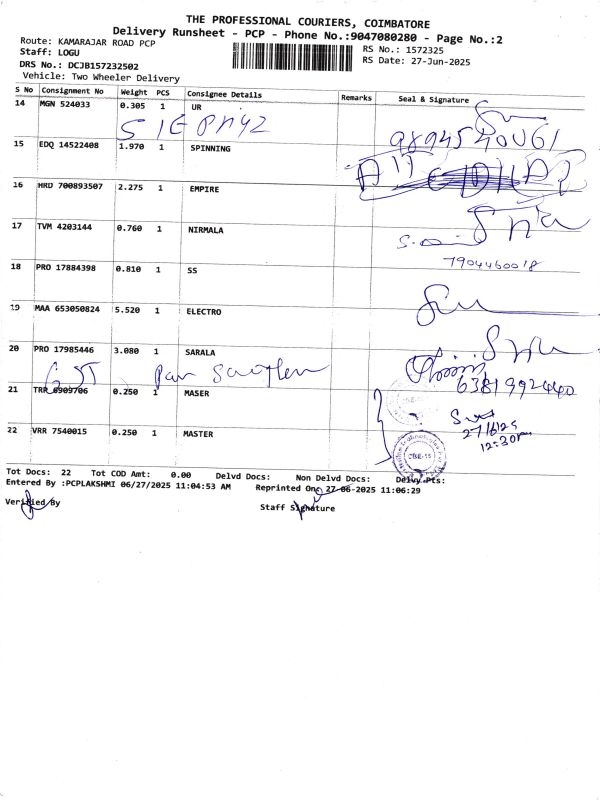 THE PROFESSIONAL COURIERS, COIMBATORE
Delivery Runsheet - PCP - Phone No.:9047080280 - Page No.:2
Route: KAMARAJAR ROAD PCP
RS No.: 1572325
Staff: LOGU
RS Date: 27-Jun-2025
DRS No.: DCJB157232502
Vehicle: Two Wheeler Delivery
S No Consignment No Weight PCS Consignee Details Remarks Seal & Signature
14 MGN 524033 0.305 1 UR
9894540061
15 EDQ 14522408 1.970 1 SPINNING
16 HRD 700893507 2.275 1 EMPIRE
17 TVM 4203144 0.760 1 NIRMALA
7904460018
18 PRO 17884398 0.810 1 SS
19 MAA 653050824 5.520 1 ELECTRO
20 PRO 17985446 3.080 1 SARALA
GST
6381992440
21 TRR 6909706 0.250 1 MASER
27/6/25
12:30pm
22 VRR 7540015 0.250 1 MASTER
CBE-15
Tot Docs: 22 Tot COD Amt: 0.00 Delvd Docs: Non Delvd Docs: Delvy Pts:
Entered By :PCPLAKSHMI 06/27/2025 11:04:53 AM Reprinted On: 27-06-2025 11:06:29
Verified By
Staff Signature